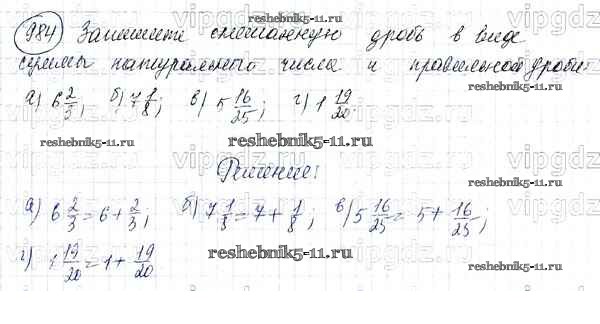 984 Запишите смешанную дробь в виде
суммы натурального числа и правильной дроби:
а) 6 2/3; б) 7 1/8; в) 5 16/25; г) 1 19/20.
reshebnik5-11.ru
Решение:
а) 6 2/3 = 6 + 2/3; б) 7 1/8 = 7 + 1/8; в) 5 16/25 = 5 + 16/25;
г) 1 19/20 = 1 + 19/20
reshebnik5-11.ru
vipgdz.ru